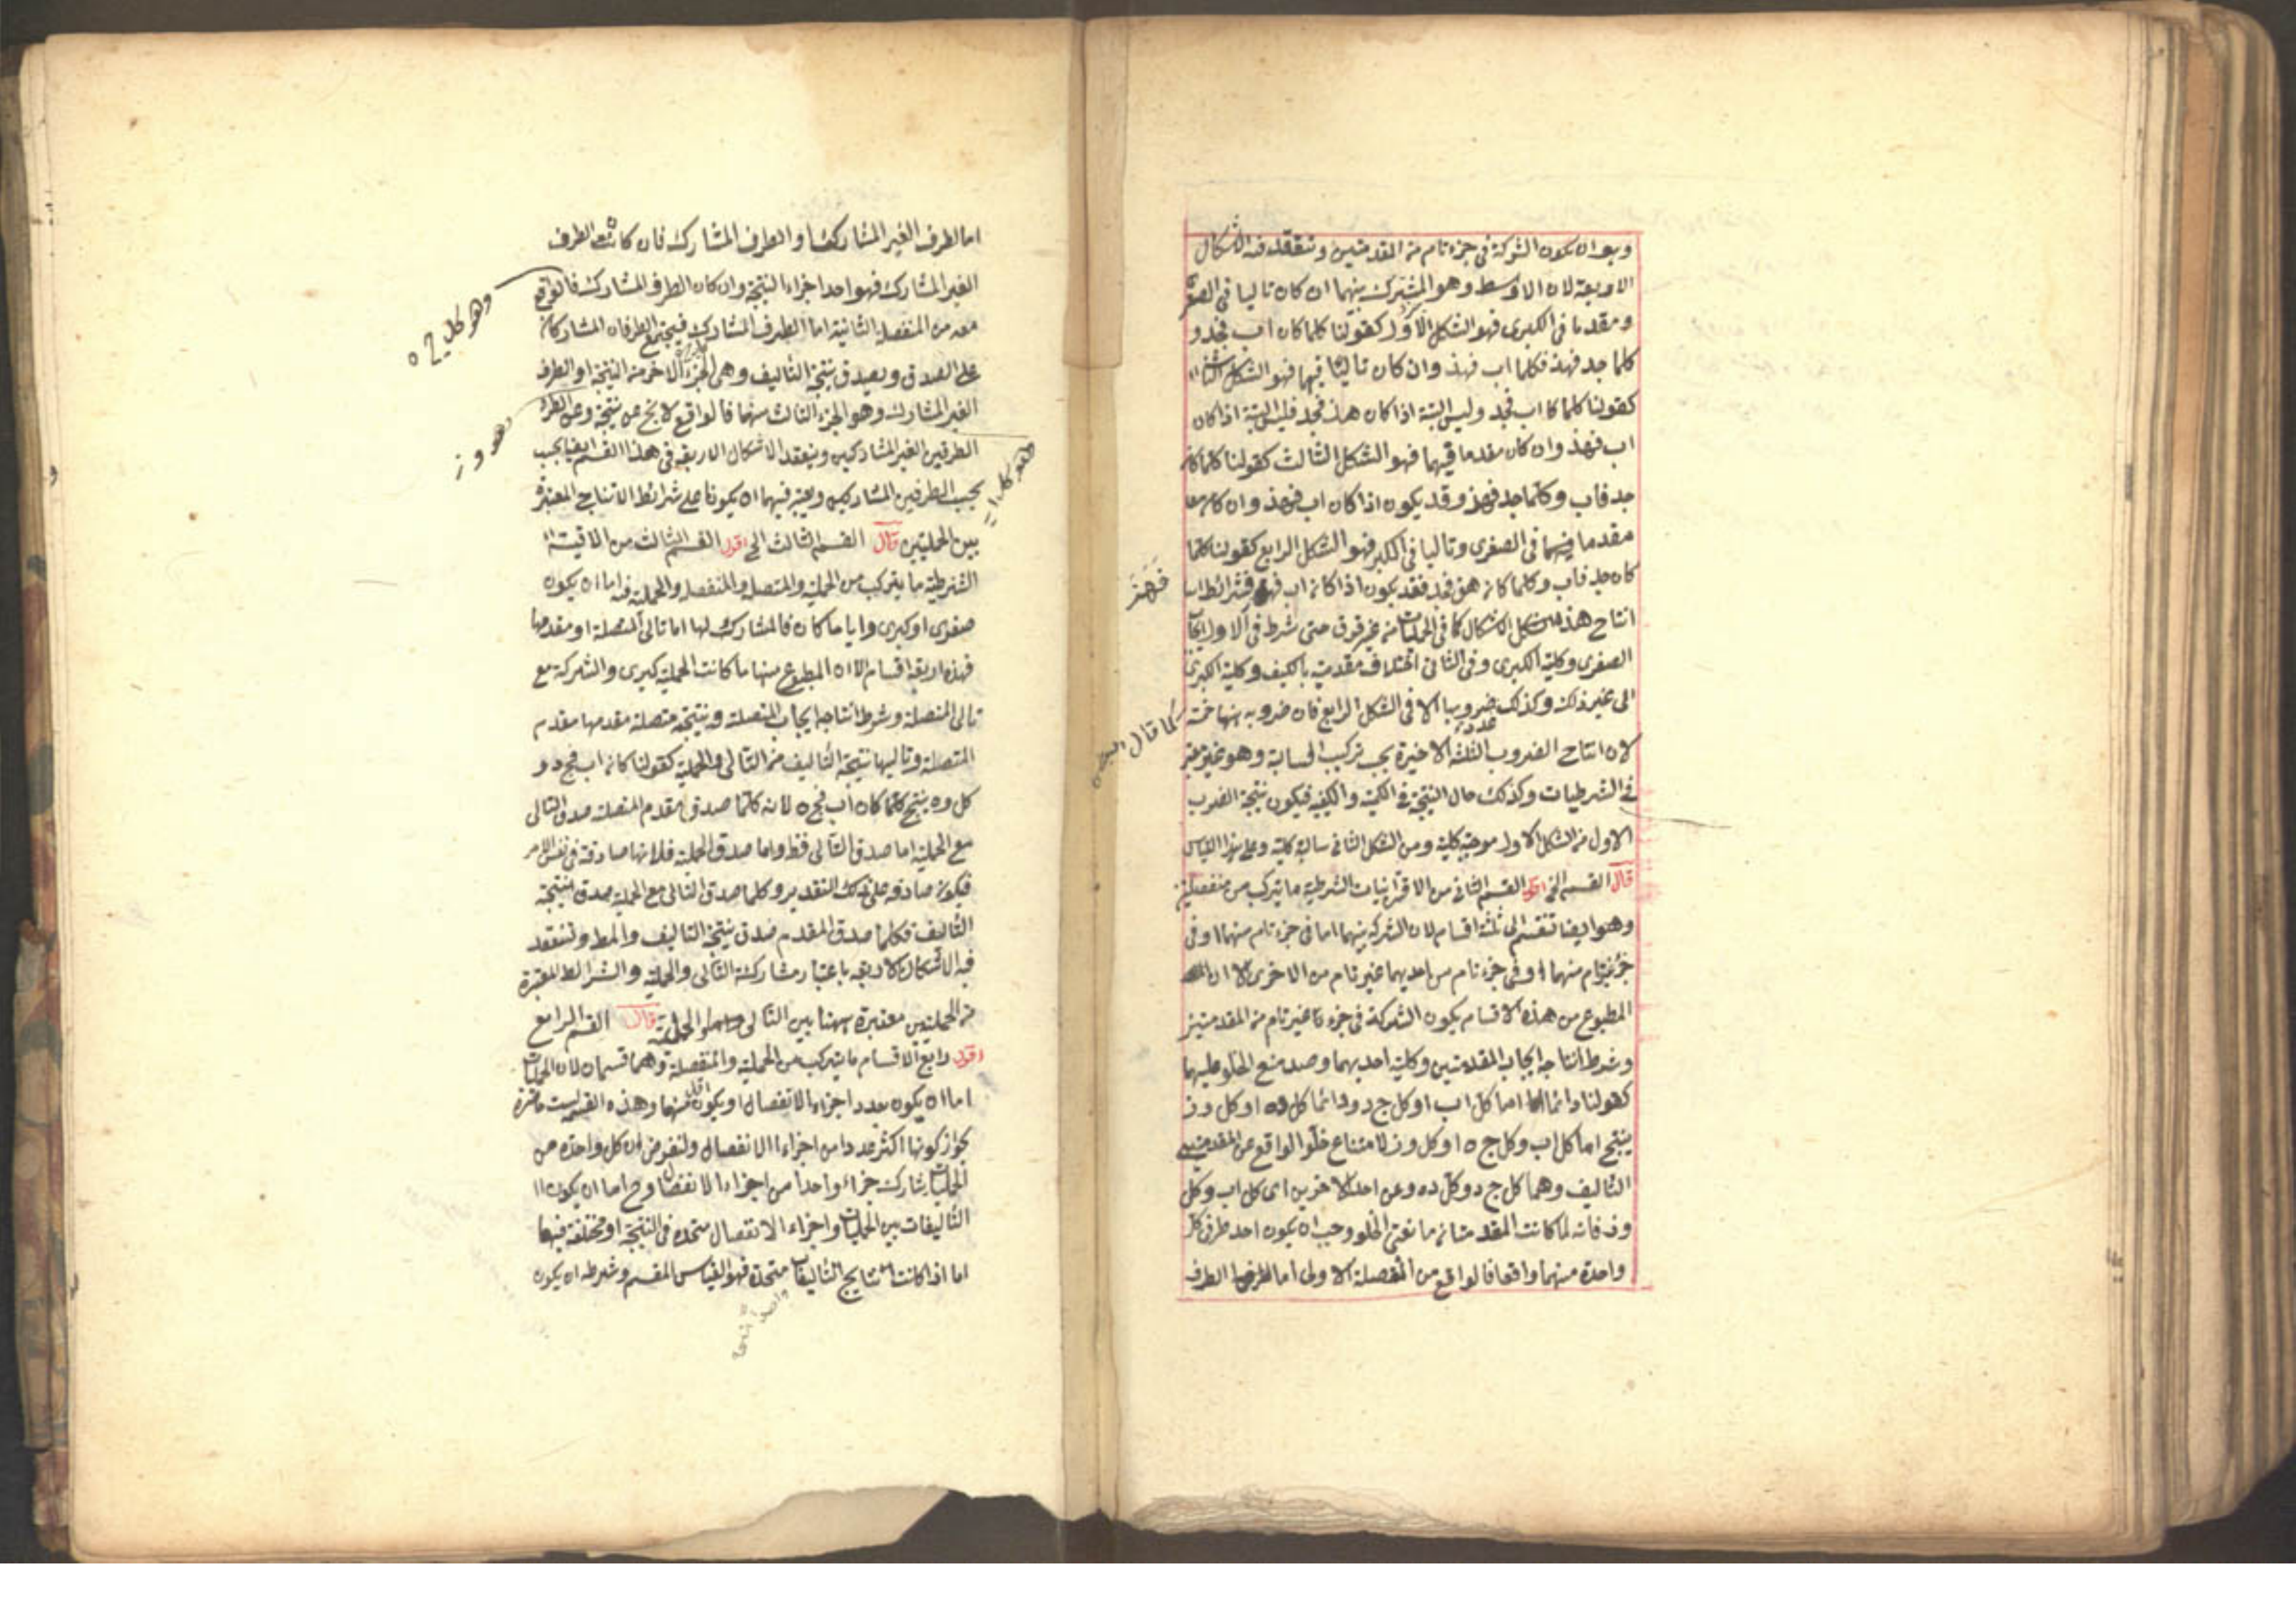 وبعد ان يكون الشركة فى جزء تام من المقدمتين وتنعقد فيه الاشكال
الاربعة لان الاوسط وهو المشترك بينهما ان كان تاليا فى الصغرى
ومقدما فى الكبرى فهو الشكل الاول كقولنا كلما كان اب فجد و
كلما جد فهذ فكلما اب فهذ وان كان تاليا فيهما فهو الشكل الثانى
كقولنا كلما كا اب فجد وليس البتة اذا كان هذ فجد فليس البتة اذا كان
اب فهذ وان كان مقدما فيهما فهو الشكل الثالث كقولنا كلما كان
جد فاب وكلما جد فهذ وقد يكون اذا كان اب فهذ وان كان
مقدما فى الصغرى وتاليا فى الكبر فهو الشكل الرابع كقولنا كلما
كان جد فاب وكلما كان هز فجد فقد يكون اذا كان اب فهز فشرائط
انتاج هذه الاشكال كما فى الحمليات من غير فرق حتى شرط فى الاول ايجاب
الصغرى وكلية الكبرى وفى الثانى اختلاف مقدمتيه بالكيف وكلية الكبرى
الى غير ذلك وكذلك عدد ضروبها الا فى الشكل الرابع فان ضروبه هنا خمسة
لان انتاج الضروب الثلثة الاخيرة بحسب تركيب السالبة وهو غير معتبر
فى الشرطيات وكذلك حال النتيجة فى الكمية والكيفية فيكون نتيجة الضرب
الاول من الشكل الاول موجبة كلية ومن الشكل الثانى سالبة كلية وعلى هذا القياس
قال القسم الخ اقول القسم الثانى من الاقترانيات الشرطية ما يتركب من منفصلتين
وهو ايضا تنقسم الى ثلثة اقسام لان الشركة بينهما اما فى جزء تام منهما او فى
جزء غير تام منهما او فى جزء تام من احديهما غير تام من الاخرى الا ان
المطبوع من هذه الاقسام يكون الشركة فى جزء غير تام من المقدمتين
وشرط انتاجه ايجاب المقدمتين وكلية احديهما وصدق منع الخلو عليهما
كقولنا دائما اما كل اب او كل ج د ودائما كل ده او كل وز
ينتج اما كل اب وكل ج ه او كل وز لامتناع خلو الواقع عن المقدمتين
التاليف وهما كل ج د وكل ده وعن احد الاخرين اى كل اب وكل
وز فانه لما كانت المقدمتان مانعتى الخلو وجب ان يكون احد طرفى كل
واحدة منهما واقعا فالواقع من المنفصلة الاولى اما الطرف
كما قال
اما لطرف الغير المشارك او الطرف المشارك فان كانت الطرف
الغير المشارك فهو احد اجزاء النتيجة وان كان الطرف المشارك فالواقع
معه من المنفصلة الثانية اما الطرف المشارك فيجتمع الطرفان المشاركان
على الصدق ويصدق نتيجة التاليف وهى الجزء الاخر من النتيجة او الطرف
الغير المشارك وهو الجزء الثالث منها فالواقع لا يخ عن نتيجة وعن
الطرفين الغير المشاركين وينعقد الاشكال الاربعة فى هذا القسم ايضا بحسب
بحسب الطرفين المشاركين ويعتبر فيهما ان يكونا على شرائط الانتاج المعتبرة
بين الحمليتين قال القسم الثالث الخ اقول القسم الثالث من الاقيسة
الشرطية ما يتركب من الحملية والمتصلة والحملية فيه اما ان يكون
صغرى او كبرى وايا ما كان فالمشارك لها اما تالى المتصلة او مقدمها
فهذه اربعة اقسام الا ان المطبوع منها ما كانت الحملية كبرى والشركة مع
تالى المتصلة وشرط انتاجه ايجاب المتصلة ونتيجته متصلة مقدمها مقدم
المتصلة وتاليها نتيجة التاليف من التالى والحملية كقولنا كان اب فج د و
كل ده ينتج كلما كان اب فج ه لانه كلما صدق مقدم المتصلة صدق التالى
مع الحملية اما صدق التالى فظ واما صدق الحملية فلانها صادقة فى نفس الامر
فيكون صادقة على ذلك التقدير وكلما صدق التالى مع الحملية صدق نتيجة
التاليف فكلما صدق المقدم صدق نتيجة التاليف والمط وتنعقد
فيه الاشكال الاربعة باعتبار مشاركة التالى والحملية والشرائط المعتبرة
من الحمليتين معتبرة ههنا بين التالى والحملية قال القسم الرابع
اقول رابع الاقسام ما يتركب من الحملية والمنفصلة وهما قسمان لان الحمليات
اما ان يكون بعدد اجزاء الانفصال او يكون اقل منها وهذه القسمة ليست حاضرة
لجواز كونها اكثر عددا من اجزاء الانفصال ولنفرض ان كل واحدة من
الحمليات يشارك جزاء واحدا من اجزاء الانفصال وح اما ان يكون
التاليفات بين الحمليات واجزاء الانفصال متحدة فى النتيجة او مختلفة فيها
اما اذا كانت نتايج التاليفات متحدة فهو القياس المقسم وشرطه ان يكون
وهو كل ج ه